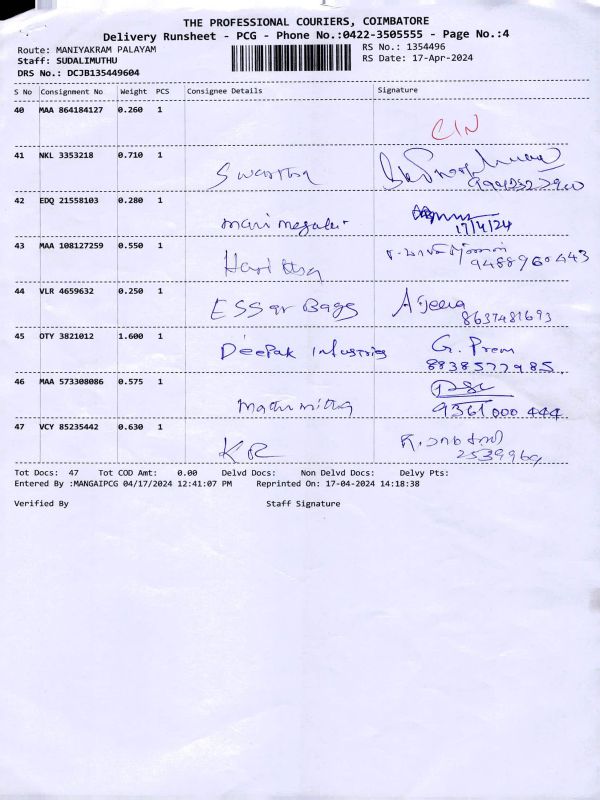 THE PROFESSIONAL COURIERS, COIMBATORE
Delivery Runsheet - PCG - Phone No.:0422-3505555 - Page No.:4
Route: MANIYAKRAM PALAYAM
RS No.: 1354496
Staff: SUDALIMUTHU
RS Date: 17-Apr-2024
DRS No.: DCJB135449604
S No Consignment No Weight PCS Consignee Details Signature
40 MAA 864184127 0.260 1
CIN
41 NKL 3353218 0.710 1
42 EDQ 21558103 0.280 1
17/4/24
43 MAA 108127259 0.550 1
9488960443
44 VLR 4659632 0.250 1
ESSar Bags
8637481693
45 OTY 3821012 1.600 1
DeePak Industries G. Prem
8838577985
46 MAA 573308086 0.575 1
9361 000 444
47 VCY 85235442 0.630 1
KR
Tot Docs: 47 Tot COD Amt: 0.00 Delvd Docs: Non Delvd Docs: Delvy Pts:
Entered By :MANGAIPCG 04/17/2024 12:41:07 PM Reprinted On: 17-04-2024 14:18:38
Verified By Staff Signature